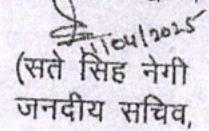 11/04/2025
(सते सिंह नेगी
जनदीय सचिव,